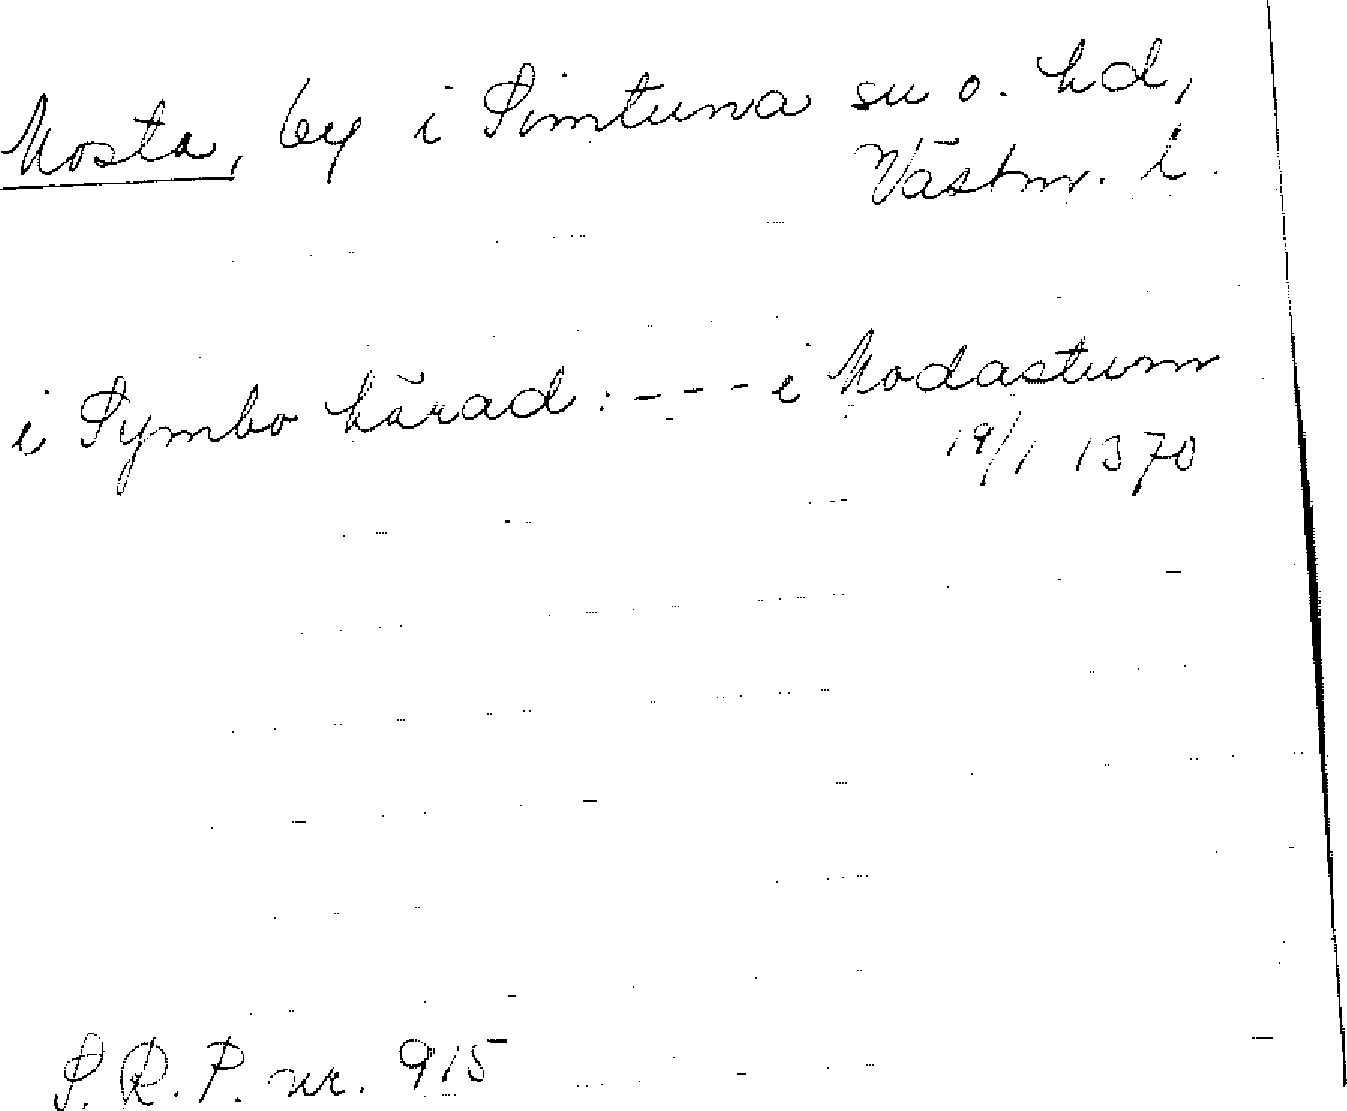 Mosta, by i Simtuna sn o. hd,
Västm. l.
i Symbo härad: --- i Modastum
19/1 1370
S.R.P. nr. 915